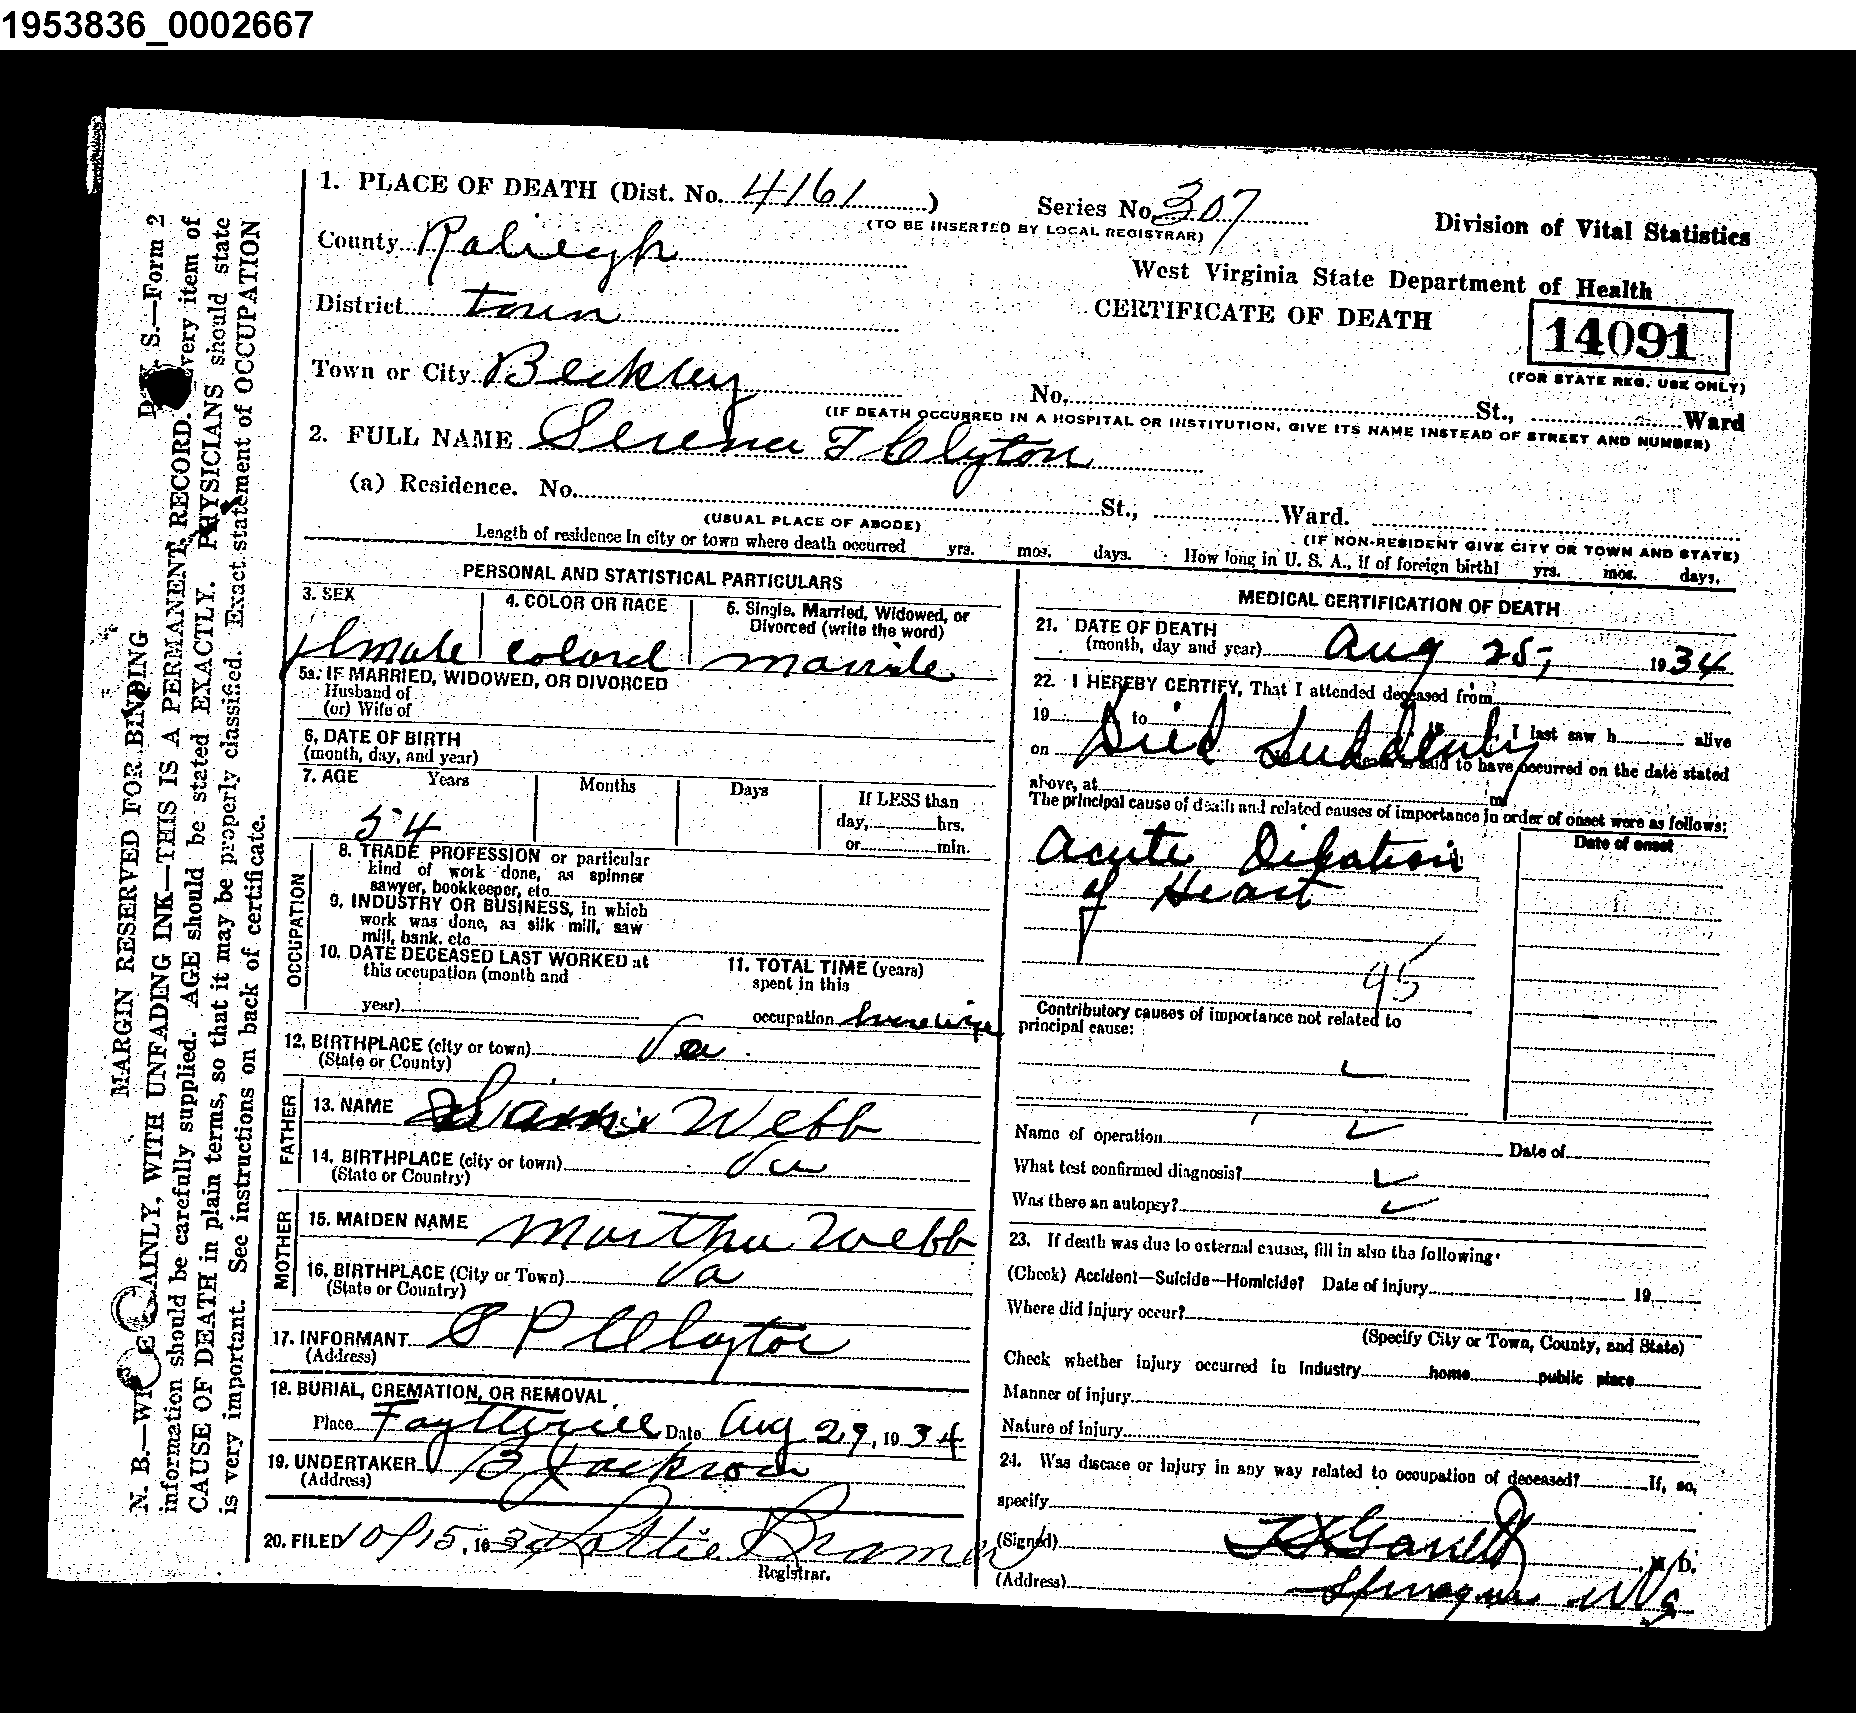 1953836_0002667
1. PLACE OF DEATH (Dist. No. 4161 )
Series No. 307
(TO BE INSERTED BY LOCAL REGISTRAR)
Division of Vital Statistics
County Raliegh
West Virginia State Department of Health
District town
CERTIFICATE OF DEATH
14091
(FOR STATE REG. USE ONLY)
Town or City Beckley
No. St., Ward
(IF DEATH OCCURRED IN A HOSPITAL OR INSTITUTION, GIVE ITS NAME INSTEAD OF STREET AND NUMBER)
2. FULL NAME Serena T Clyton
(a) Residence. No. St., Ward.
(USUAL PLACE OF ABODE)
(IF NON-RESIDENT GIVE CITY OR TOWN AND STATE)
Length of residence in city or town where death occurred yrs. mos. days. How long in U. S. A., if of foreign birth! yrs. mos. days.
PERSONAL AND STATISTICAL PARTICULARS
3. SEX
4. COLOR OR RACE
5. Single, Married, Widowed, or
Divorced (write the word)
colord
5a. IF MARRIED, WIDOWED, OR DIVORCED
Husband of
(or) Wife of
6. DATE OF BIRTH
(month, day, and year)
7. AGE Years Months Days If LESS than
day, hrs.
or min.
54
OCCUPATION
8. TRADE PROFESSION or particular
kind of work done, as spinner
sawyer, bookkeeper, etc.
9. INDUSTRY OR BUSINESS, in which
work was done, as silk mill, saw
mill, bank, etc
10. DATE DECEASED LAST WORKED at
this occupation (month and
year)
11. TOTAL TIME (years)
spent in this
occupation
12. BIRTHPLACE (city or town) Va.
(State or County)
FATHER
13. NAME Webb
14. BIRTHPLACE (city or town) Va
(State or Country)
MOTHER
15. MAIDEN NAME Martha Webb
16. BIRTHPLACE (City or Town) Va
(State or Country)
17. INFORMANT S P Clayton
(Address)
18. BURIAL, CREMATION, OR REMOVAL
Place Date Aug 29, 1934
19. UNDERTAKER B Jackson
(Address)
20. FILED 10/15, 1934 Lottie
Registrar.
MEDICAL CERTIFICATION OF DEATH
21. DATE OF DEATH
(month, day and year) Aug 25, 1934
22. I HEREBY CERTIFY, That I attended deceased from
19 to I last saw h alive
Died Suddenly
on said to have occurred on the date stated
above, at m
The principal cause of death and related causes of importance in order of onset were as follows:
Date of onset
Acute Dilation
of Heart
95
Contributory causes of importance not related to
principal cause:
Name of operation Date of
What test confirmed diagnosis?
Was there an autopsy?
23. If death was due to external causes, fill in also the following:
(Check) Accident—Suicide—Homicide? Date of injury 19
Where did injury occur?
(Specify City or Town, County, and State)
Check whether injury occurred in industry home public place
Manner of injury
Nature of injury
24. Was disease or injury in any way related to occupation of deceased? If, so,
specify
(Signed) Garrett M. D.
(Address) Sprague WVa
MARGIN RESERVED FOR BINDING
S.—Form 2
AINLY, WITH UNFADING INK—THIS IS A PERMANENT RECORD. Every item of
information should be carefully supplied. AGE should be stated EXACTLY. PHYSICIANS should state
CAUSE OF DEATH in plain terms, so that it may be properly classified. Exact statement of OCCUPATION
is very important. See instructions on back of certificate.